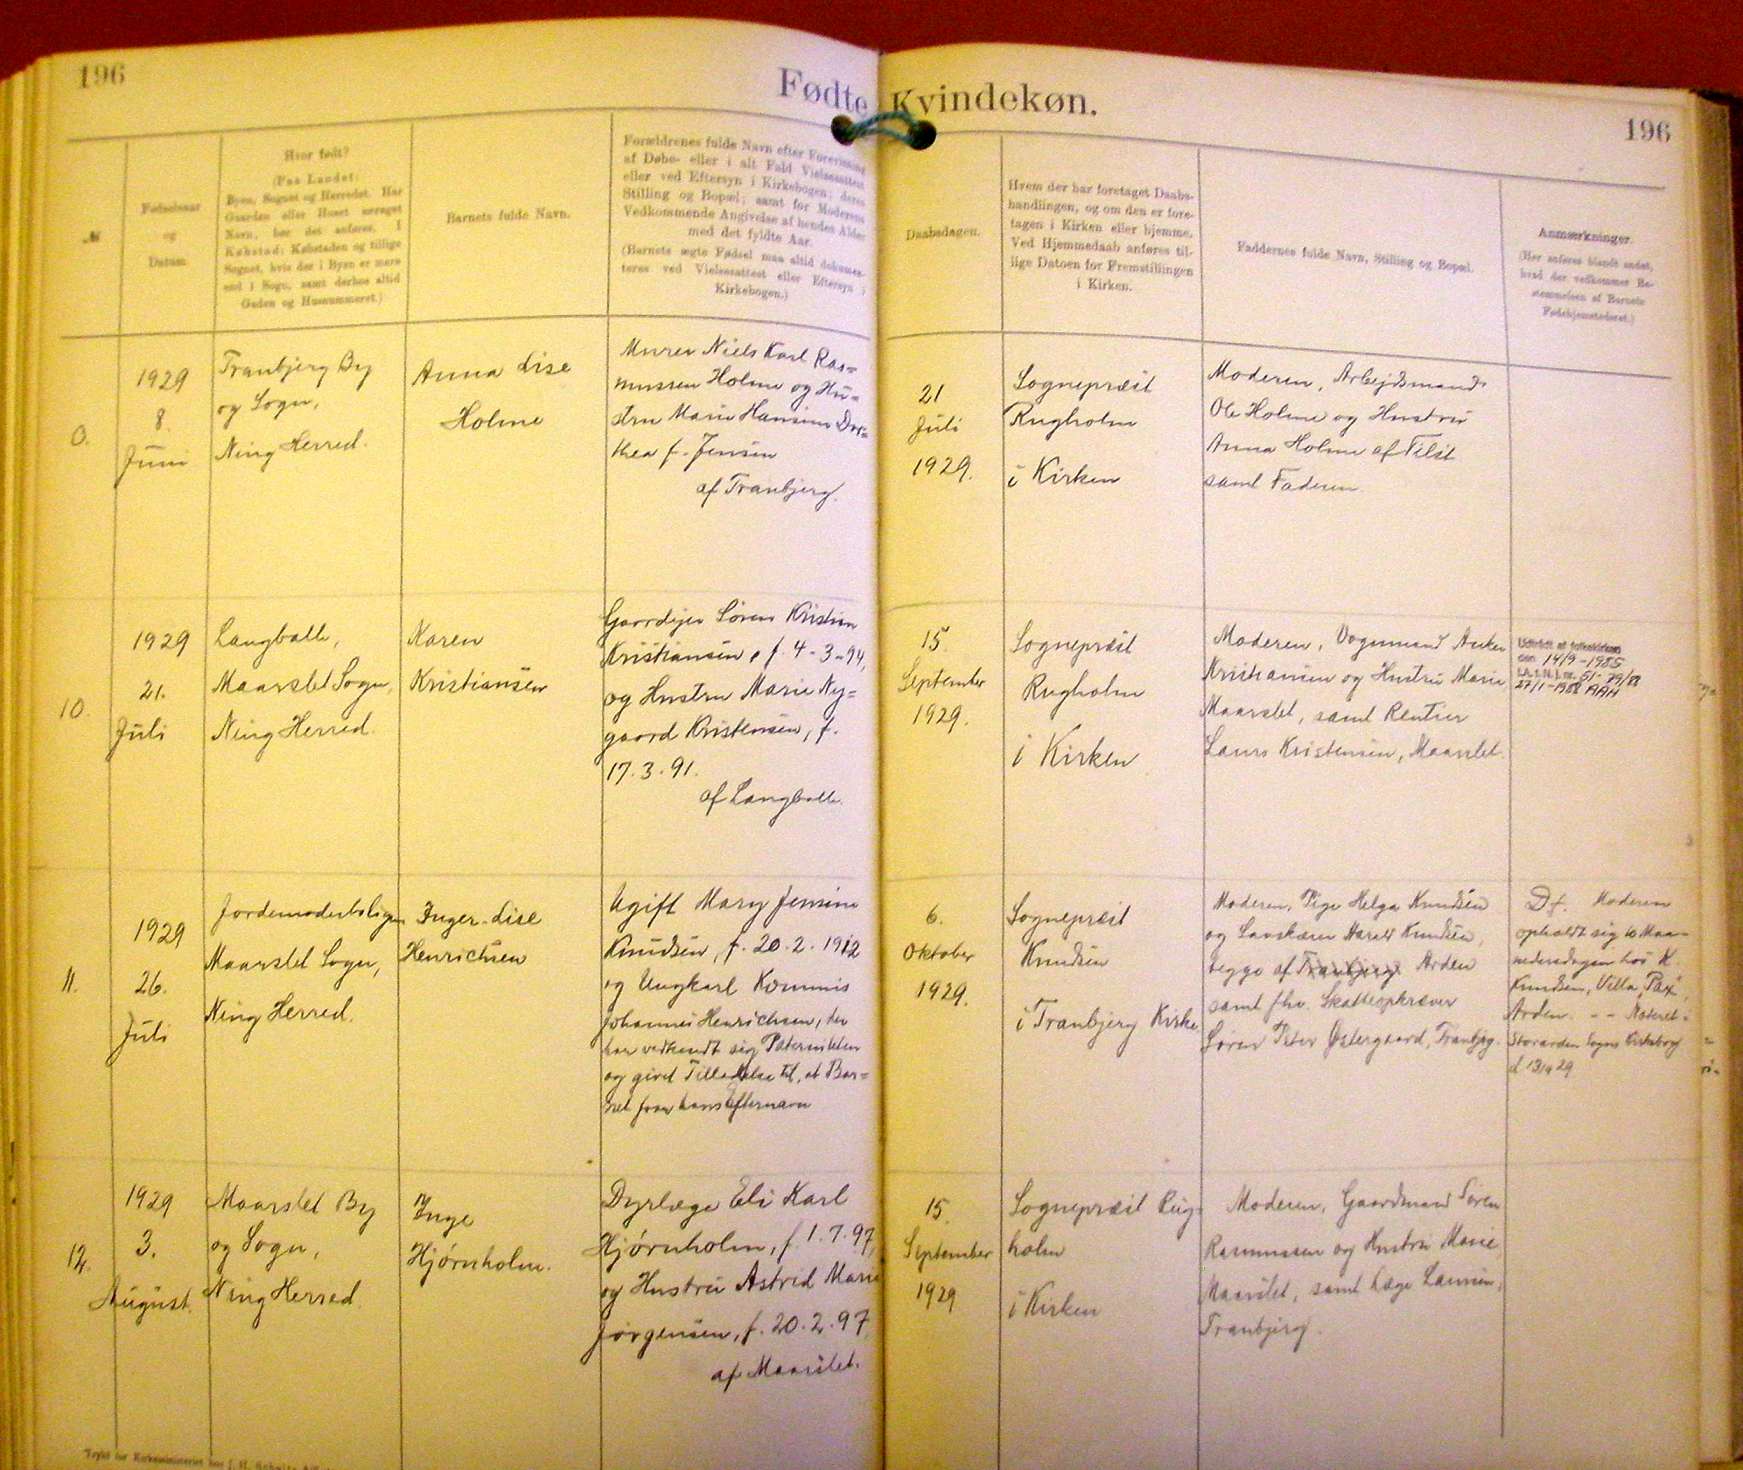 196
Fødte Kvindekøn.
196
№
Fødselsaar
og
Datum.
Hvor født?
(Paa Landet:
Byen, Sognet og Herredet. Har
Gaarden eller Huset særeget
Navn, bør det anføres. I
Købstad: Købstaden og tillige
Sognet, hvis der i Byen er mere
end 1 Sogn, samt derhos altid
Gaden og Husnummeret.)
Barnets fulde Navn.
Forældrenes fulde Navn efter Forevisning
af Døbe- eller i alt Fald Vielsesattest
eller ved Eftersyn i Kirkebogen; deres
Stilling og Bopæl; samt for Moderens
Vedkommende Angivelse af hendes Alder
med det fyldte Aar.
(Barnets ægte Fødsel maa altid dokumen-
teres ved Vielsesattest eller Eftersyn i
Kirkebogen.)
Daabsdagen.
Hvem der har foretaget Daabs-
handlingen, og om den er fore-
tagen i Kirken eller hjemme.
Ved Hjemmedaab anføres til-
lige Datoen for Fremstillingen
i Kirken.
Faddernes fulde Navn, Stilling og Bopæl.
Anmærkninger.
(Her anføres blandt andet,
hvad der vedkommer Be-
stemmelsen af Barnets
Fødehjemstedsret.)
1929
8.
Juni
Tranbjerg By
og Sogn,
Ning Herred.
Anna Lise
Holme
Murer Niels Karl Ras=
mussen Holme og Hu=
stru Marie Hansine Dor=
thea f. Jensen
af Tranbjerg.
21
Juli
1929.
Sognepræst
Rugholm
i Kirken
Moderen, Arbejdsmand
Ole Holme og Hustru
Anna Holme af Tilst
samt Faderen
10.
1929
21.
Juli
Langballe,
Maarslet Sogn,
Ning Herred.
Karen
Kristiansen
Gaardejer Søren Kristian
Kristiansen, f. 4-3-94,
og Hustru Marie Ny=
gaard Kristensen, f.
17.3.91.
af Langballe.
15.
September
1929.
Sognepræst
Rugholm
i Kirken
Moderen, Vognmand Anker
Kristiansen og Hustru Marie
Maarslet, samt Rentier
Laurs Kristensen, Maarslet.
Udtrådt af folkekirken
den 14/9-1985
27/1-1988 AAH
11.
1929
26.
Juli
Jordemoderboligen
Maarslet Sogn,
Ning Herred.
Inger-Lise
Henrichsen
Ugift Mary Jensine
Knudsen, f. 20.2.1912
og Ungkarl Kommis
Johannes Henrichsen, der
har vedkendt sig Paterniteten
og givet Tilladelse til, at Bar=
net faar hans Efternavn
6.
Oktober
1929.
Sognepræst
Knudsen
i Tranbjerg Kirke
Moderen, Pige Helga Knudsen
og Harald Knudsen,
begge af Tranbjerg Arden
samt fhv. Skatteopkræver
Søren Peter Østergaard, Tranbjrg.
Moderen
opholdt sig 10 Maa=
nedersdagen hos K.
Knudsen, Villa „Pax",
Arden. -- Noteret i
Storarden Sogns Kirkebog
12.
1929
3.
August.
Maarslet By
og Sogn,
Ning Herred.
Inge
Hjørnholm.
Dyrlæge Eli Karl
Hjørnholm, f. 1.7.97,
og Hustru Astrid Marie
Jørgensen, f. 20.2.97,
af Maarslet.
15.
September
1929
Sognepræst Rug-
holm
i Kirken
Moderen, Gaardmand Søren
Rasmussen og Hustru Marie,
Maarslet, samt Læge
Tranbjerg.